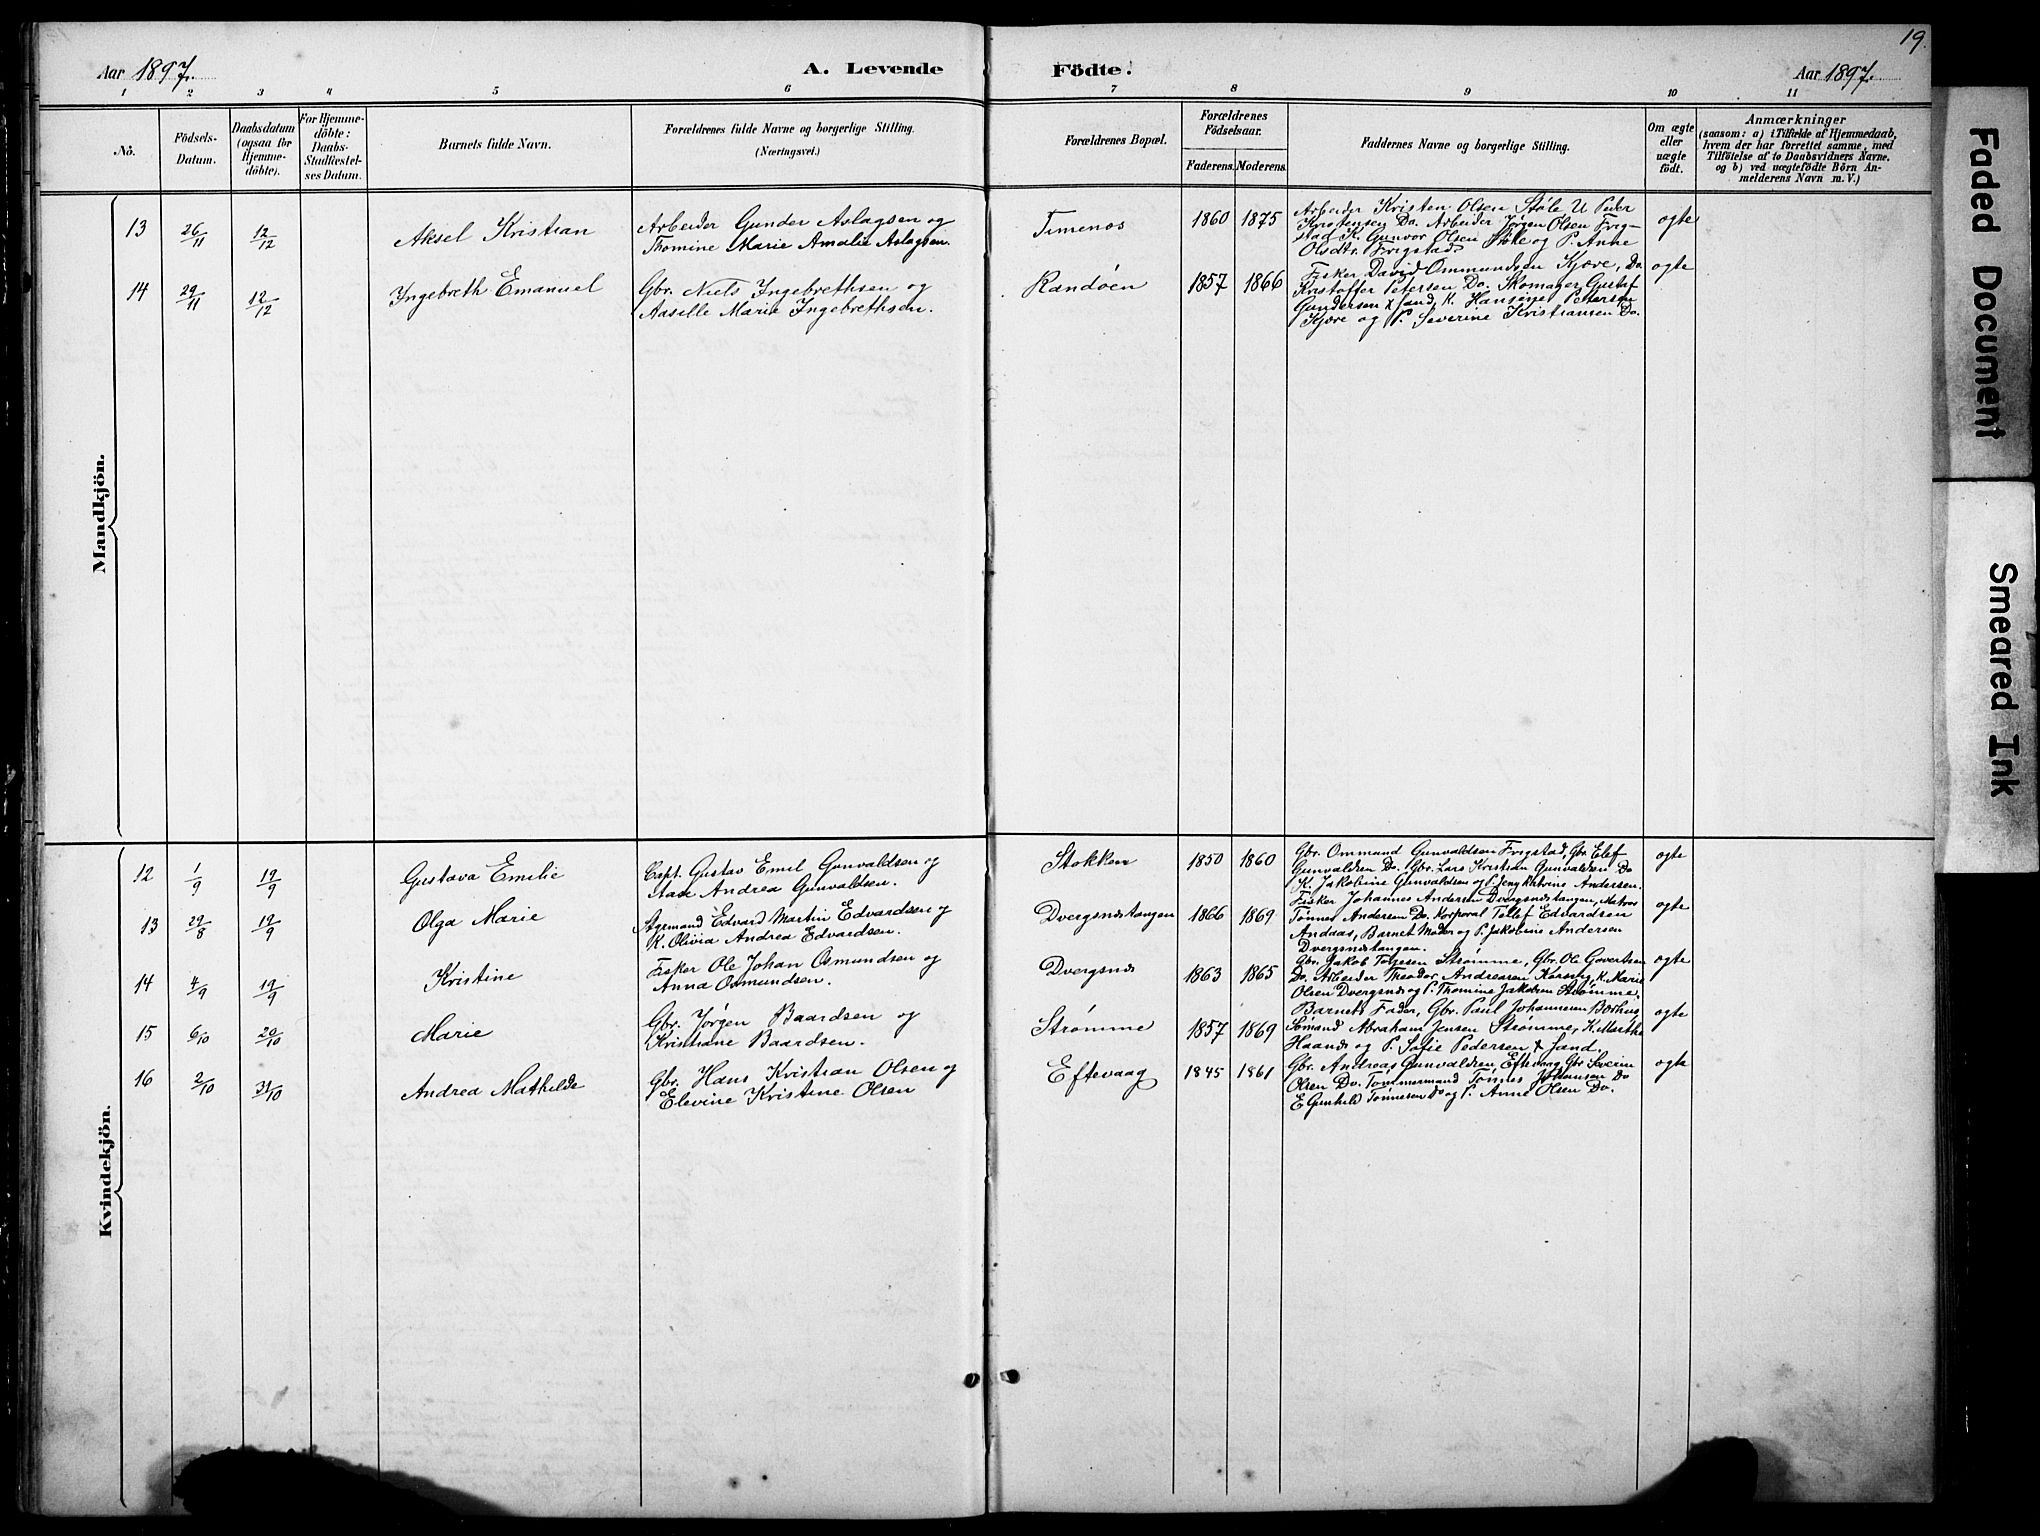 19.
Aar 1897. A. Levende Födte. Aar 1897.
1 2 3 4 5 6 7 8 9 10 11
No.
Födsels-
Datum.
Daabsdatum
(ogsaa for
Hjemme-
döbte).
For Hjemme-
döbte:
Daabs-
Stadfæstel-
ses Datum.
Barnets fulde Navn.
Forældrenes fulde Navne og borgerlige Stilling.
(Næringsvei.)
Forældrenes Bopæl.
Forældrenes
Födselsaar.
Faderens. Moderens.
Faddernes Navne og borgerlige Stilling.
Om ægte
eller
uægte
födt.
Anmærkninger
(saasom: a) i Tilfælde af Hjemmedaab,
hvem der har forrettet samme, med
Tilföielse af to Daabsvidners Navne.
og b) ved uægtefödte Börn An-
melderens Navn m. V.)
Mandkjön.
13 26/11 12/12 Aksel Kristian
Arbeider Gunder Aslagsen og
Thomine Marie Amalie Aslagsen.
Timenes 1860 1875
Arbeider Kristen Olsen Støle U Peder
Do. Arbeider Jørgen Olsen Frig-
stad K. Gunvor Olsen Støle og P. Anne
Olsdtr. Frigstad
ægte
14 29/11 12/12 Ingebreth Emanuel
Gbr. Niels Ingebrethsen og
Aasille Marie Ingebrethsen.
Randøen 1857 1866
Fisker David Ommundsen Kjære, Do.
Kristoffer Petersen Do. Skomager Gustaf
Gundersen Sand, K. Petersen
Kjære og P. Severine Kristiansen Do.
ægte
Kvindekjön.
12 1/9 19/9 Gustava Emilie
Capt. Gustav Emil Gunvaldsen og
Aase Andrea Gunvaldsen.
Stokken 1850 1860
Gbr. Ommund Gunvaldsen Frigstad, Gbr. Elef
Gunvaldsen Do. Gbr. Lars Kristian Gunvaldsen Do
K. Jakobine Gunvaldsen og P. Jenykatrine Andersen.
ægte
13 29/8 19/9 Olga Marie
Styrmand Edvard Martin Edvardsen og
K. Olivia Andrea Edvardsen.
Dvergsnestangen 1866 1869
Fisker Johannes Andersen Dvergsnestangen, Matros
Tønnes Andersen Do. Korporal Tellef Edvardsen
Andaas, Barnet Moder og P. Jakobine Andersen
Dvergsnestangen.
ægte
14 4/9 19/9 Kristine
Fisker Ole Johan Osmundsen og
Anna Osmundsen.
Dvergsnes 1863 1865
Gbr. Jakob Tarjesen Strømme, Gbr. Ole Govertsen
Do. Arbeider Theodor Andreasen K. Marie
Olsen Dvergsnes og P. Thomine Jakobsen Strømme.
ægte
15 6/10 20/10 Marie
Gbr. Jørgen Baardsen og
Kristiane Baardsen.
Strømme 1857 1869
Barnets Fader, Gbr. Paul Johannesen
Sømand Abraham Jensen Strømme, K. Marthe
Haanes og P. Sofie Pedersen Sand.
ægte
16 2/10 31/10 Andrea Mathilde
Gbr. Hans Kristian Olsen og
Elevine Kristine Olsen
Eftevaag 1845 1861
Gbr. Andreas Gunvaldsen Eftevaag, Gbr Severin
Olsen Do. Tømmermand Tønnes Do
E Gunhild Tønnesen Do og P. Anne Olsen Do.
ægte
Faded Document
Smeared Ink